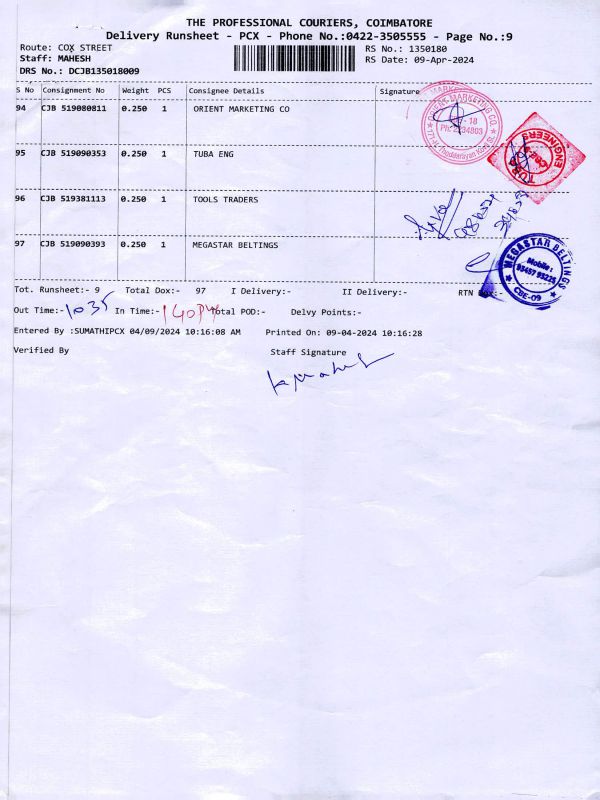 THE PROFESSIONAL COURIERS, COIMBATORE
Delivery Runsheet - PCX - Phone No.:0422-3505555 - Page No.:9
Route: COX STREET
RS No.: 1350180
Staff: MAHESH
RS Date: 09-Apr-2024
DRS No.: DCJB135018009
S No Consignment No Weight PCS Consignee Details Signature
94 CJB 519080811 0.250 1 ORIENT MARKETING CO
95 CJB 519090353 0.250 1 TUBA ENG
96 CJB 519381113 0.250 1 TOOLS TRADERS
97 CJB 519090393 0.250 1 MEGASTAR BELTINGS
ORIENT MARKETING CO.
TUBA ENGINEERS
MEGASTAR BELTINGS
Mobile:
CBE-09
Tot. Runsheet:- 9 Total Dox:- 97 I Delivery:- II Delivery:- RTN Dox:-
Out Time:- 1035 In Time:- 140PM Total POD:- Delvy Points:-
Entered By :SUMATHIPCX 04/09/2024 10:16:08 AM Printed On: 09-04-2024 10:16:28
Verified By Staff Signature